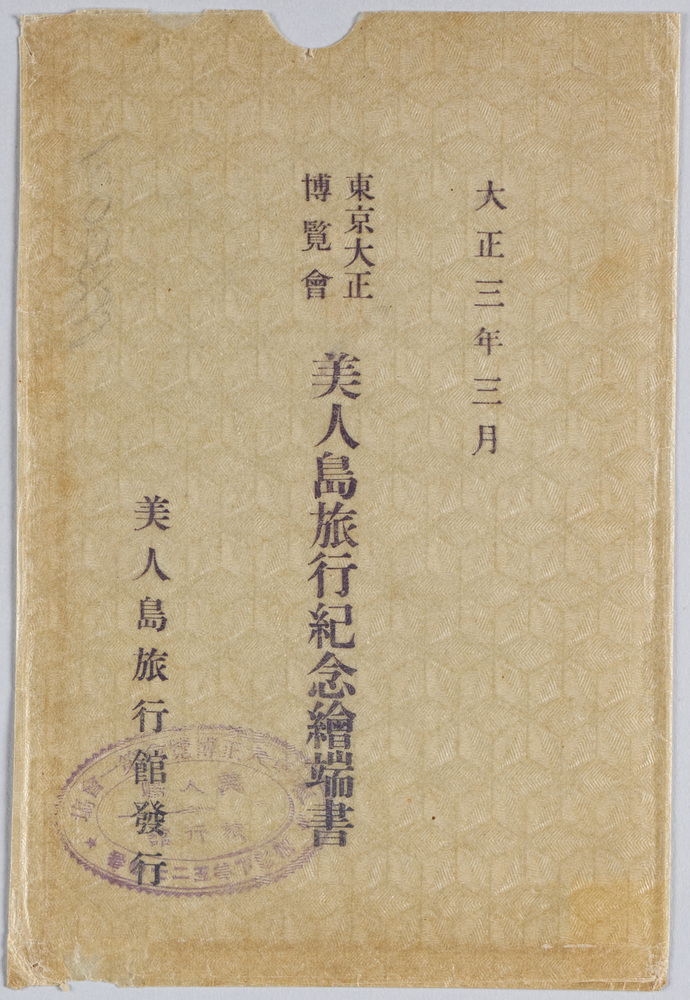 大正三年三月
東京大正
博覽會
美人島旅行紀念繪端書
美人島旅行館發行